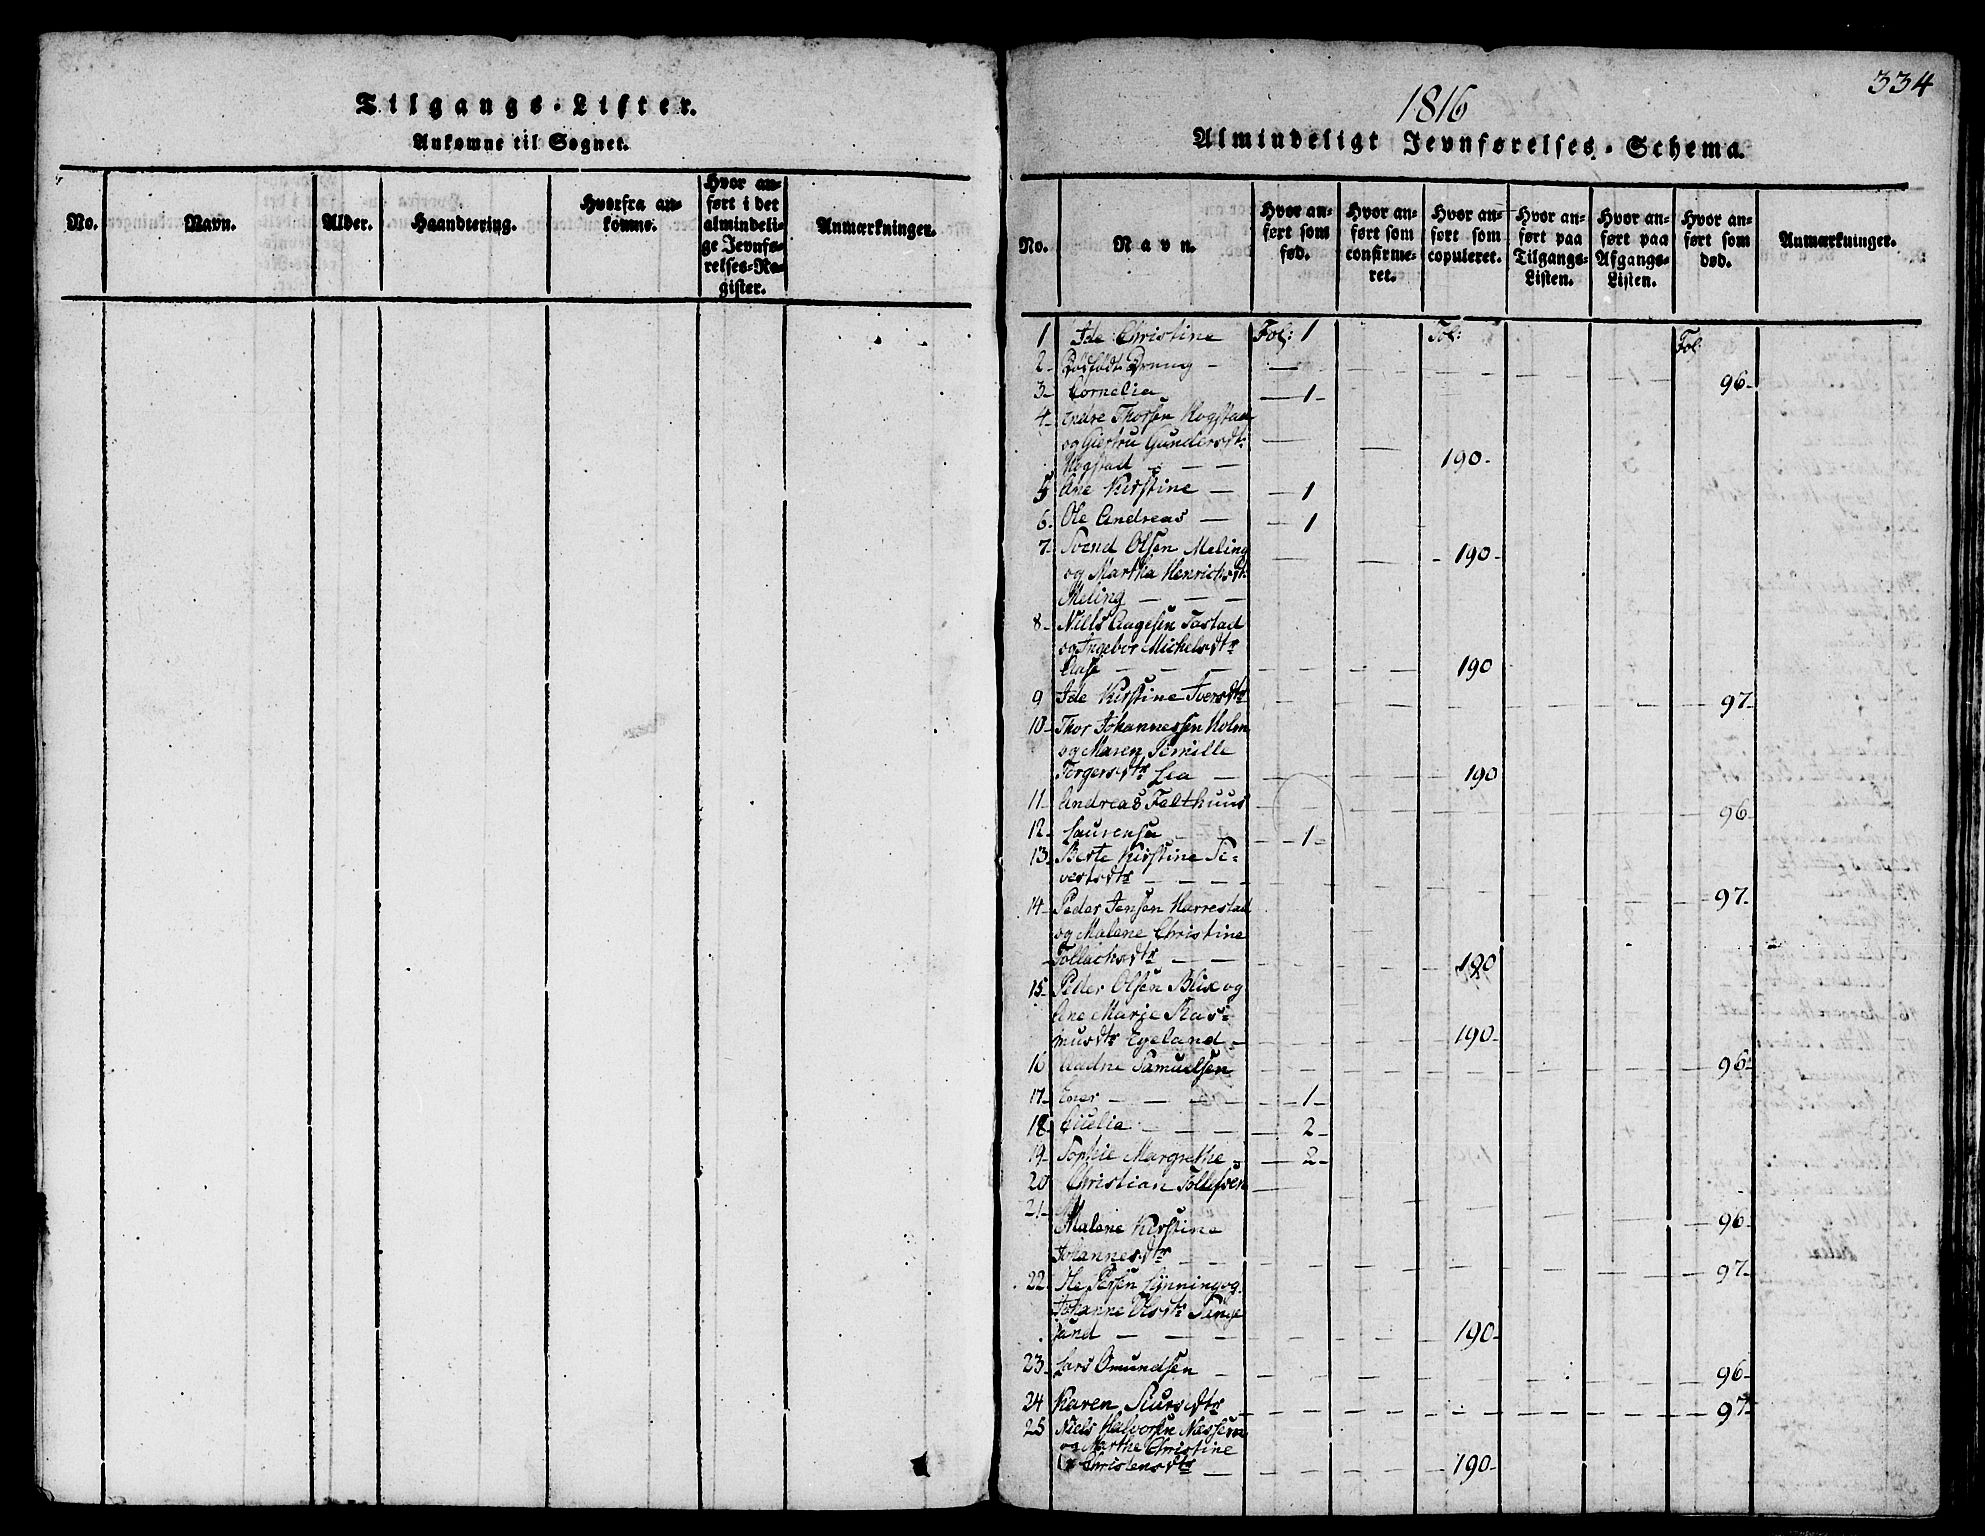 Tilgangs-Lister.
Ankomne til Sognet.
No.
Navn.
Alder.
Haandtering.
Hvorfra an-
komne.
Hvor an-
ført i det
almindeli-
ge Jevnfø-
relses-Re-
gister.
Anmærkninger.
334
1816
Almindeligt Jevnførelses-Schema.
No.
Navn.
Hvor an-
ført som
fød.
Hvor an-
ført som
confirme-
ret.
Hvor an-
ført som
copuleret.
Hvor an-
ført paa
Tilgangs-
Listen.
Hvor an-
ført paa
Afgangs-
Listen.
Hvor an-
ført som
død.
Anmærkninger.
1 Ide Christine Fol: 1 Fol: Fol:
2 Dødfødt Dreng 96
3 Cornelia 1
4 Endre Thorsen Hogstad
og Giertru Gundersdtr
Hogstad 190
5 Ane Kirstine 1
6 Ole Andreas 1
7 Svend Olsen Meling 190
og Martha Henrichsdtr
Meling
8 Niels Aagesen Tastad
og Ingebor Michelsdtr
Aase 190
9 Ide Kirstine Iversdtr 97
10 Thor Johannessen Holm
og Maren Pernille
Torgersdtr Lea 190
11 Andreas Falthuus 96
12 Laurensa 1
13 Berte Kirstine Si-
vertsdtr 97
14 Peder Jensen Harrestad
og Malene Christine
Tollachsdtr 190
15 Peder Olsen Blix og
Ane Marje Ras-
musdtr Egeland 190
16 Aadne Samuelsen 96
17 Ener 1
18 Cicilia 2
19 Sophie Margrethe 2
20 Christian Tollefsen
21 96
Malene Kirstine
Johannesdtr 97
22 Ole Persen Lynning og
Johanne Olsdtr Tunge
land 190
23 Lars Omundsen 96
24 Karen Siursdtr 97
25 Niels Halvorsen Nessem
og Marthe Christine
Christensdtr 190